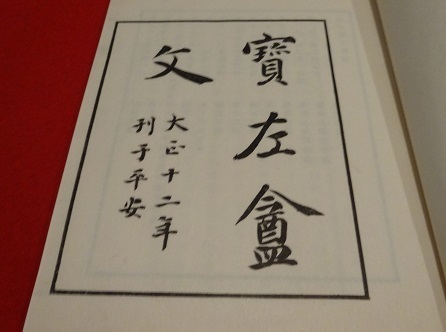 寶左盦
文
大正十二年
刊于平安